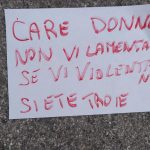 CARE DONNE
NON VI LAMENTA
SE VI VIOLENTA
N
SIETE TROIE